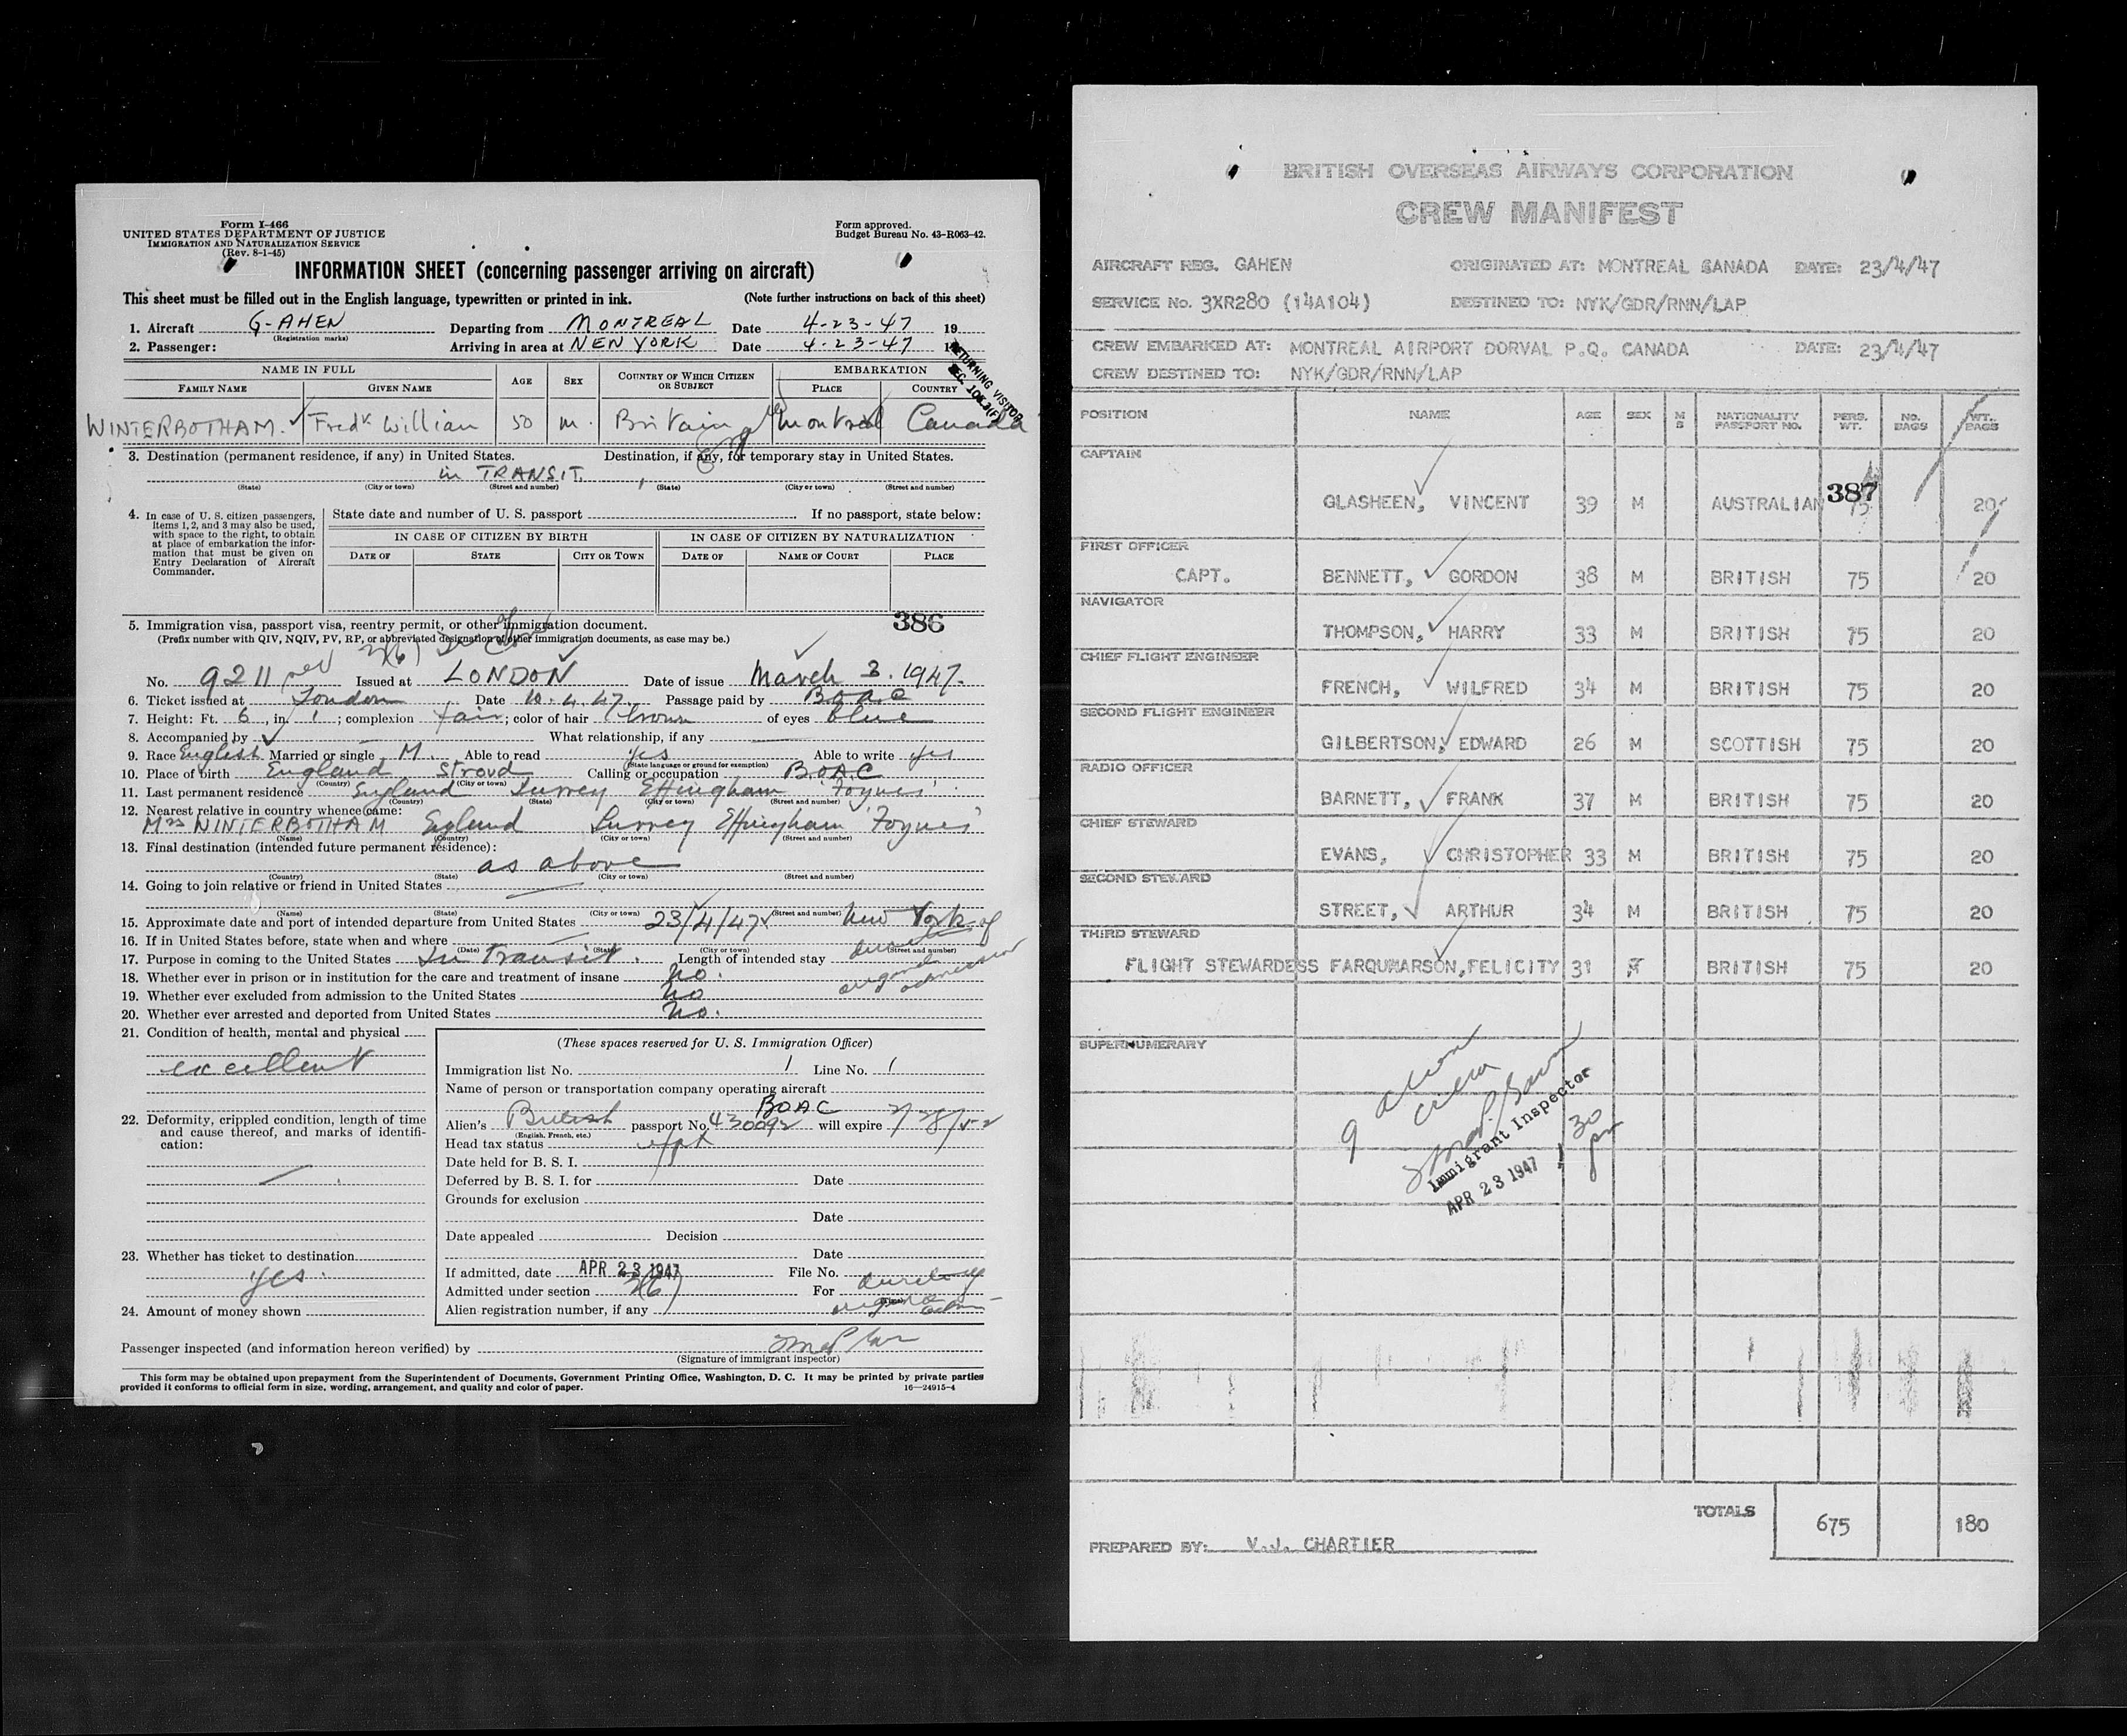 Form I-466
UNITED STATES DEPARTMENT OF JUSTICE
IMMIGRATION AND NATURALIZATION SERVICE
(Rev. 8-1-45)
Form approved.
Budget Bureau No. 43-R063-42.
INFORMATION SHEET (concerning passenger arriving on aircraft)
This sheet must be filled out in the English language, typewritten or printed in ink. (Note further instructions on back of this sheet)
1. Aircraft G-AHEN Departing from MONTREAL Date 4-23-47 19
(Registration marks)
2. Passenger: Arriving in area at NEW YORK Date 4-23-47
RETURNING VISITOR
NAME IN FULL AGE SEX COUNTRY OF WHICH CITIZEN OR SUBJECT EMBARKATION
FAMILY NAME GIVEN NAME PLACE COUNTRY
WINTERBOTHAM. Fredk William 50 m. Britain Montreal Canada
3. Destination (permanent residence, if any) in United States. Destination, if any, for temporary stay in United States.
in TRANSIT.
(State) (City or town) (Street and number) (State) (City or town) (Street and number)
4. In case of U. S. citizen passengers, items 1, 2, and 3 may also be used, with space to the right, to obtain at place of embarkation the information that must be given on Entry Declaration of Aircraft Commander.
State date and number of U. S. passport If no passport, state below:
IN CASE OF CITIZEN BY BIRTH IN CASE OF CITIZEN BY NATURALIZATION
DATE OF STATE CITY OR TOWN DATE OF NAME OF COURT PLACE
386
5. Immigration visa, passport visa, reentry permit, or other immigration document.
(Prefix number with QIV, NQIV, PV, RP, or abbreviated designation of other immigration documents, as case may be.)
3(6)
No. 9211 Issued at LONDON Date of issue March 3. 1947.
6. Ticket issued at London Date 10.4.47. Passage paid by BOAC
7. Height: Ft. 6, in. 1; complexion fair; color of hair brown of eyes blue
8. Accompanied by What relationship, if any
9. Race English Married or single M. Able to read yes Able to write yes
(State language or ground for exemption)
10. Place of birth England Stroud Calling or occupation BOAC
(Country) (City or town)
11. Last permanent residence England Surrey Effingham 'Foynes'
(Country) (State) (City or town) (Street and number)
12. Nearest relative in country whence came:
Mrs WINTERBOTHAM England Surrey Effingham 'Foynes'
(Name) (Country) (City or town) (Street and number)
13. Final destination (intended future permanent residence):
as above
(Country) (State) (City or town) (Street and number)
14. Going to join relative or friend in United States
(Name) (State) (City or town) (Street and number)
15. Approximate date and port of intended departure from United States 23/4/47 New York
16. If in United States before, state when and where
(Date) (State) (City or town) (Street and number)
17. Purpose in coming to the United States In transit. Length of intended stay
18. Whether ever in prison or in institution for the care and treatment of insane no.
19. Whether ever excluded from admission to the United States no
20. Whether ever arrested and deported from United States no.
21. Condition of health, mental and physical
excellent
22. Deformity, crippled condition, length of time and cause thereof, and marks of identification:
23. Whether has ticket to destination
yes.
24. Amount of money shown
(These spaces reserved for U. S. Immigration Officer)
Immigration list No. 1 Line No. 1
Name of person or transportation company operating aircraft
BOAC
Alien's British passport No. 430092 will expire
(English, French, etc.)
Head tax status
Date held for B. S. I.
Deferred by B. S. I. for Date
Grounds for exclusion
Date
Date appealed Decision
Date
If admitted, date APR 23 1947 File No.
Admitted under section 3(6) For
Alien registration number, if any
Passenger inspected (and information hereon verified) by
(Signature of immigrant inspector)
This form may be obtained upon prepayment from the Superintendent of Documents, Government Printing Office, Washington, D. C. It may be printed by private parties
provided it conforms to official form in size, wording, arrangement, and quality and color of paper. 16—24915-4
BRITISH OVERSEAS AIRWAYS CORPORATION
CREW MANIFEST
AIRCRAFT REG. GAHEN ORIGINATED AT: MONTREAL CANADA DATE: 23/4/47
SERVICE No. 3XR280 (14A104) DESTINED TO: NYK/GDR/RNN/LAP
CREW EMBARKED AT: MONTREAL AIRPORT DORVAL P.Q. CANADA DATE: 23/4/47
CREW DESTINED TO: NYK/GDR/RNN/LAP
POSITION NAME AGE SEX M S NATIONALITY PASSPORT NO. PERS. WT. NO. BAGS WT. BAGS
CAPTAIN
387
GLASHEEN, VINCENT 39 M AUSTRALIAN 75 20
FIRST OFFICER
CAPT. BENNETT, GORDON 38 M BRITISH 75 20
NAVIGATOR
THOMPSON, HARRY 33 M BRITISH 75 20
CHIEF FLIGHT ENGINEER
FRENCH, WILFRED 34 M BRITISH 75 20
SECOND FLIGHT ENGINEER
GILBERTSON, EDWARD 26 M SCOTTISH 75 20
RADIO OFFICER
BARNETT, FRANK 37 M BRITISH 75 20
CHIEF STEWARD
EVANS, CHRISTOPHER 33 M BRITISH 75 20
SECOND STEWARD
STREET, ARTHUR 34 M BRITISH 75 20
THIRD STEWARD
FLIGHT STEWARDESS FARQUMARSON, FELICITY 31 F BRITISH 75 20
SUPERNUMERARY
9 alien
crew
Immigrant Inspector
APR 23 1947
1 30
pm
TOTALS 675 180
PREPARED BY: V.J. CHARTIER